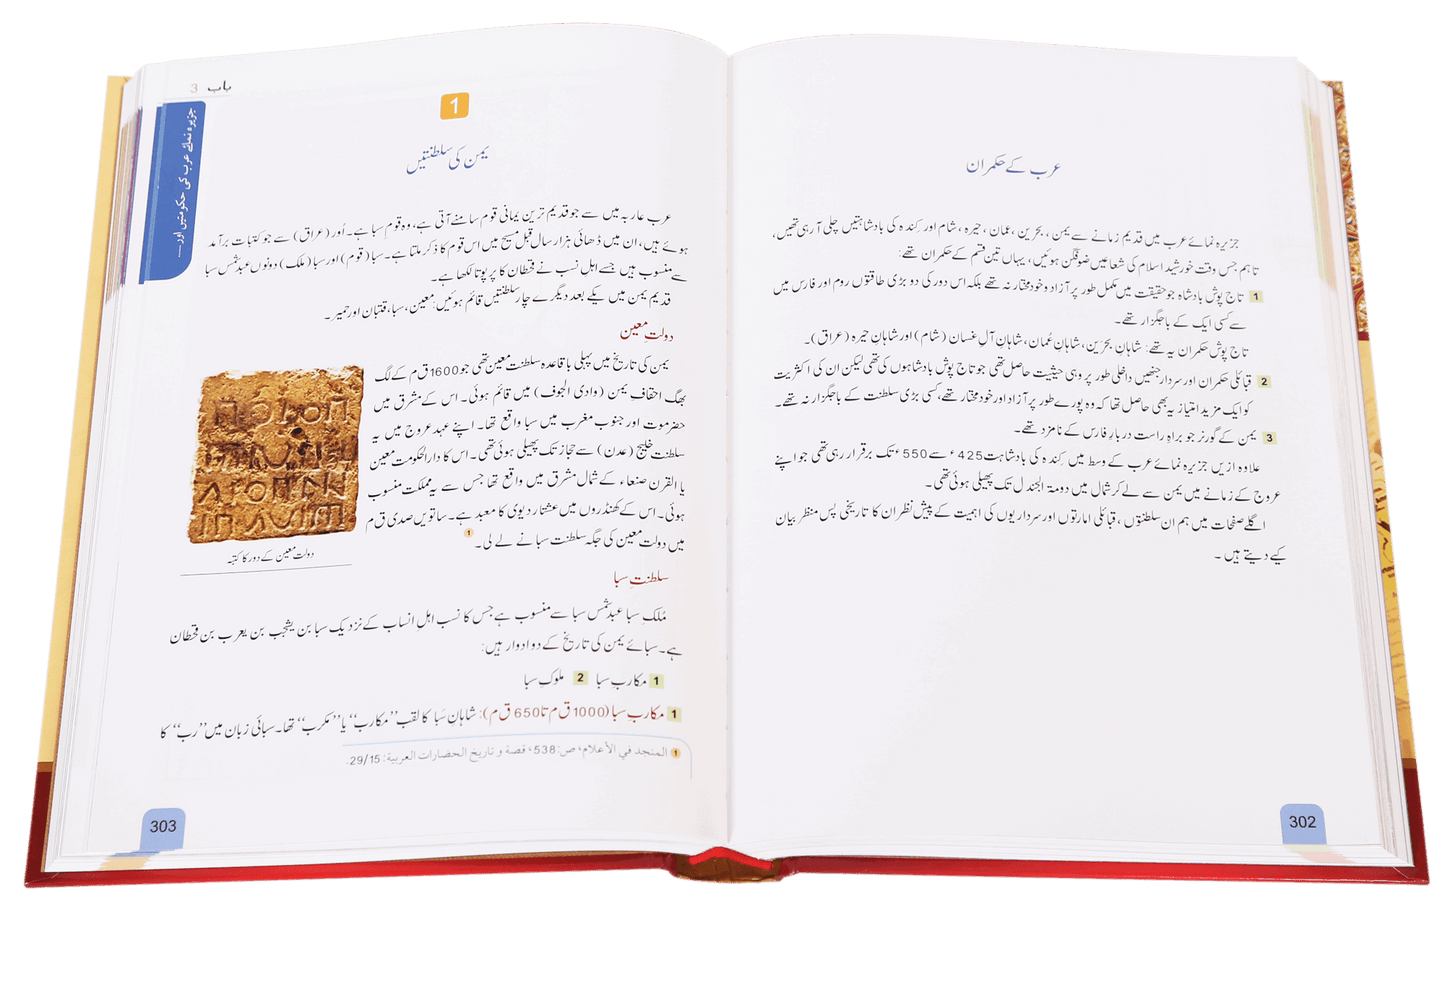 عرب کے حکمران
جزیرہ نمائے عرب میں قدیم زمانے سے یمن، بحرین، عمان، حیرہ، شام اور کندہ کی بادشاہتیں چلی آ رہی تھیں،
تاہم جس وقت خورشید اسلام کی شعاعیں ضوفگن ہوئیں، یہاں تین قسم کے حکمران تھے:
1 تاج پوش بادشاہ جو حقیقت میں مکمل طور پر آزاد و خود مختار نہ تھے بلکہ اس دور کی دو بڑی طاقتوں روم اور فارس میں
سے کسی ایک کے باجگزار تھے۔
تاج پوش حکمران یہ تھے: شاہانِ بحرَین، شاہانِ عُمان، شاہانِ آلِ غسان (شام) اور شاہانِ حیرہ (عراق)۔
2 قبائلی حکمران اور سردار جنھیں داخلی طور پر وہی حیثیت حاصل تھی جو تاج پوش بادشاہوں کی تھی لیکن ان کی اکثریت
کو ایک مزید امتیاز یہ بھی حاصل تھا کہ وہ پورے طور پر آزاد اور خود مختار تھے، کسی بڑی سلطنت کے باجگزار نہ تھے۔
3 یمن کے گورنر جو براہِ راست دربارِ فارس کے نامزد تھے۔
علاوہ ازیں جزیرہ نمائے عرب کے وسط میں کِندہ کی بادشاہت 425ء سے 550ء تک برقرار رہی تھی جو اپنے
عروج کے زمانے میں یمن سے لے کر شمال میں دومۃ الجندل تک پھیلی ہوئی تھی۔
اگلے صفحات میں ہم ان سلطنتوں، قبائلی امارتوں اور سرداریوں کی اہمیت کے پیش نظر ان کا تاریخی پس منظر بیان
کیے دیتے ہیں۔
302
باب 3
جزیرہ نمائے عرب کی حکومتیں اور ....
1
یمن کی سلطنتیں
عرب عاربہ میں سے جو قدیم ترین یمانی قوم سامنے آتی ہے، وہ قوم سبا ہے۔ اُور (عراق) سے جو کتبات برآمد
ہوئے ہیں، ان میں ڈھائی ہزار سال قبل مسیح میں اس قوم کا ذکر ملتا ہے۔ سبا (قوم) اور سبا (ملک) دونوں عبدشمس سبا
سے منسوب ہیں جسے اہل نسب نے قحطان کا پرپوتا لکھا ہے۔
قدیم یمن میں یکے بعد دیگرے چار سلطنتیں قائم ہوئیں: معین، سبا، قتبان اور حمیر۔
دولتِ معین
یمن کی تاریخ میں پہلی باقاعدہ سلطنت معین تھی جو 1600 ق م کے لگ
بھگ احقاف یمن (وادی الجوف) میں قائم ہوئی۔ اس کے مشرق میں
حضرموت اور جنوب مغرب میں سبا واقع تھا۔ اپنے عہد عروج میں یہ
سلطنت خلیج (عدن) سے حجاز تک پھیلی ہوئی تھی۔ اس کا دارالحکومت معین
یا القرن صنعاء کے شمال مشرق میں واقع تھا جس سے یہ مملکت منسوب
ہوئی۔ اس کے کھنڈروں میں عشتار دیوی کا معبد ہے۔ ساتویں صدی ق م
میں دولت معین کی جگہ سلطنت سبا نے لے لی۔ 1
دولت معین کے دور کا کتبہ
سلطنتِ سبا
مُلکِ سبا عبدشمس سبا سے منسوب ہے جس کا نسب اہلِ انساب کے نزدیک سبا بن یشجب بن یعرب بن قحطان
ہے۔ سبائے یمن کی تاریخ کے دو ادوار ہیں:
1 مکاربِ سبا 2 ملوکِ سبا
1 مکاربِ سبا (1000 ق م تا 650 ق م): شاہانِ سبا کا لقب ”مکارب“ یا ”مکرب“ تھا۔ سبائی زبان میں ”رب“ کا
1 المنجد في الأعلام، ص: 538، قصة و تاريخ الحضارات العربية: 29/15.
303